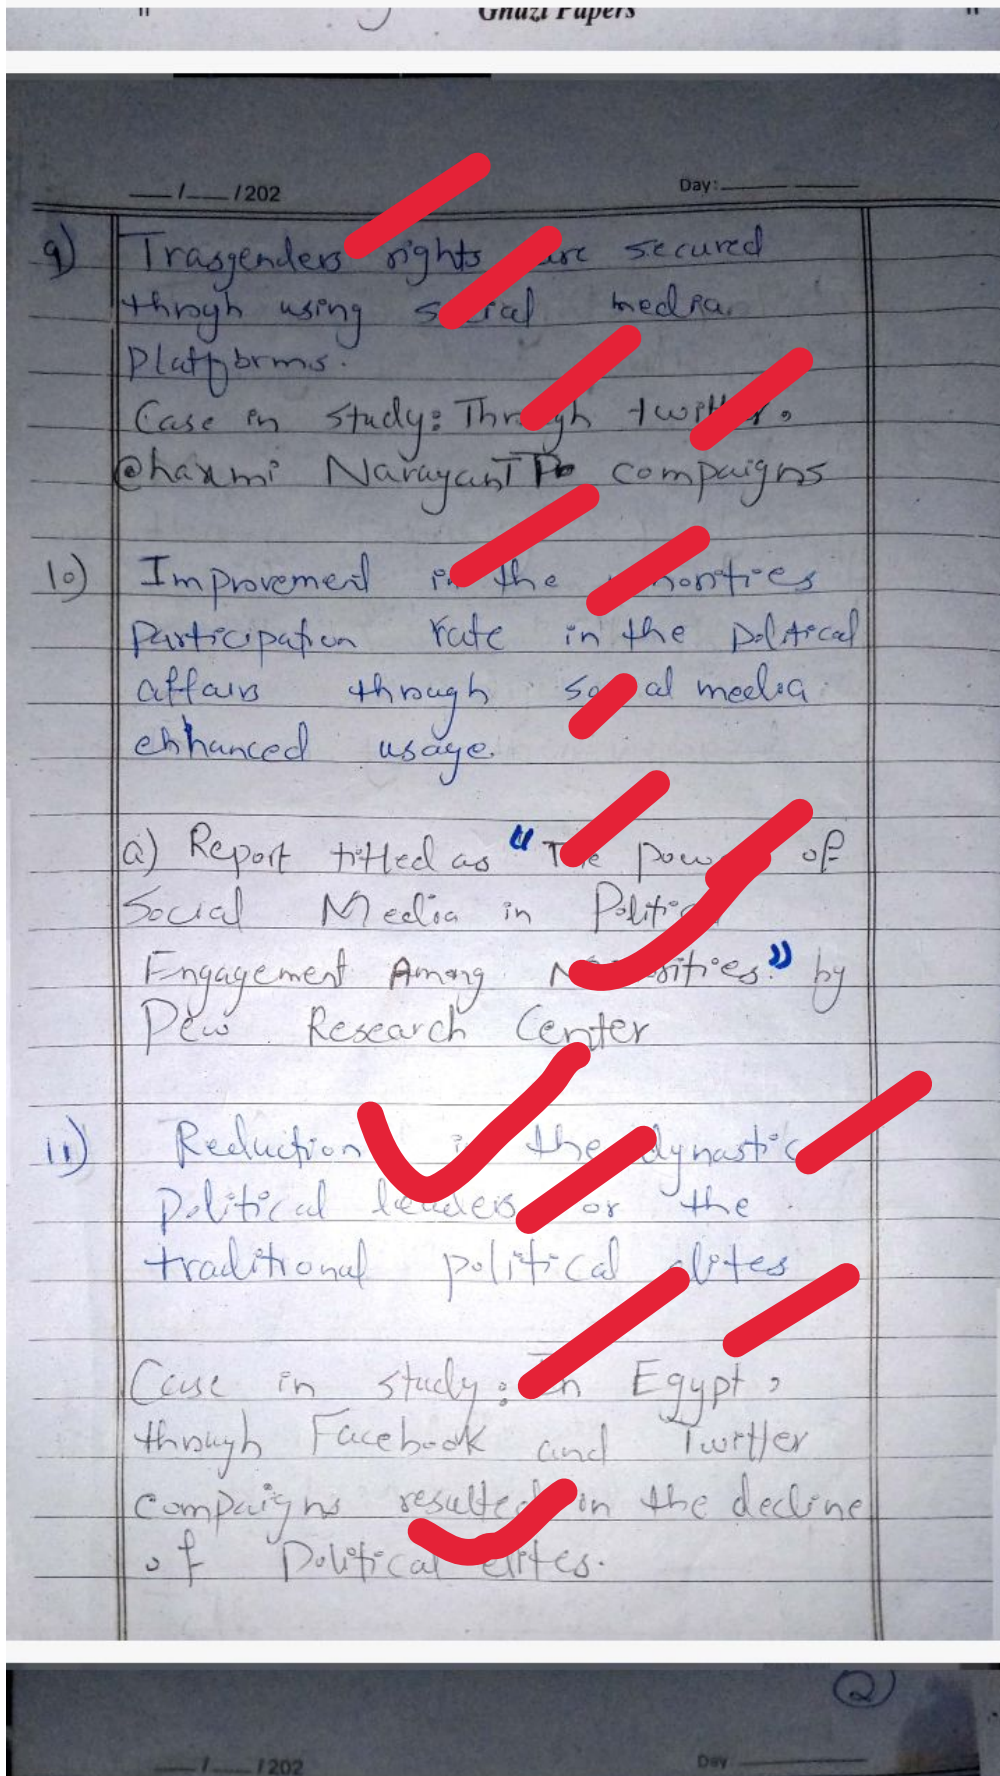 Ghazi Papers
__/__/202 Day:
9) Trasgenders rights are secured
throgh using social media
Platforms.
Case in study: Through twitter,
@haxmi Narayan T compaigns
10) Improvement in the minorities
participation rate in the political
affairs through social media
enhanced usage.
a) Report titled as "The power of
Social Media in Political
Engagement Among Minorities." by
Pew Research Center
11) Reduction in the dynastic
political leaders or the
traditional political elites
Case in study: In Egypt,
through Facebook and Twitter
compaigns resulted in the decline
of Political elites.
2
__/__/202 Day